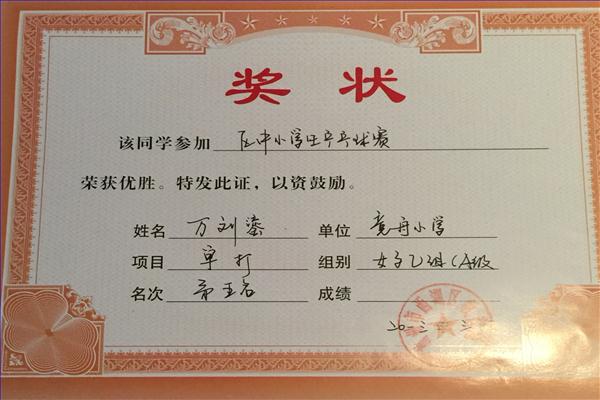 奖状
该同学参加 区中小学生乒乓球赛
荣获优胜。特发此证，以资鼓励。
姓名 万刘鎏 单位 竞舟小学
项目 单打 组别 女子乙组(A级
名次 第五名 成绩